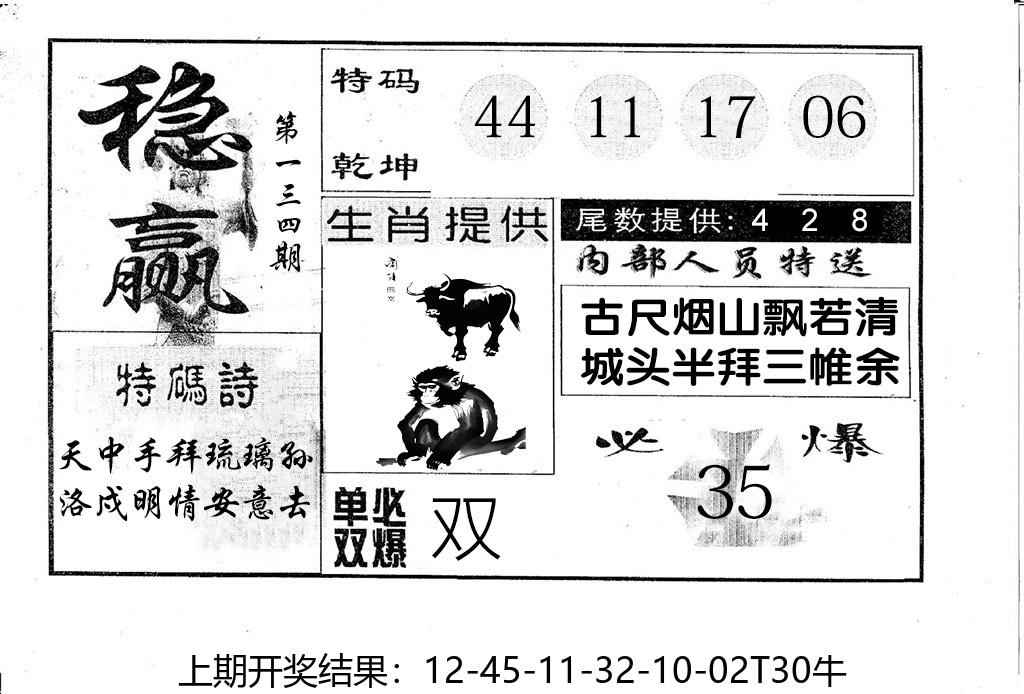 稳赢
第一三四期
特码
乾坤
44 11 17 06
生肖提供
尾数提供: 4 2 8
内部人员特送
古尺烟山飘若清
城头半拜三帷余
特碼詩
天中手拜琉璃孙
洛戍明情安意去
单双
必爆
双
必 爆
35
上期开奖结果：12-45-11-32-10-02T30牛